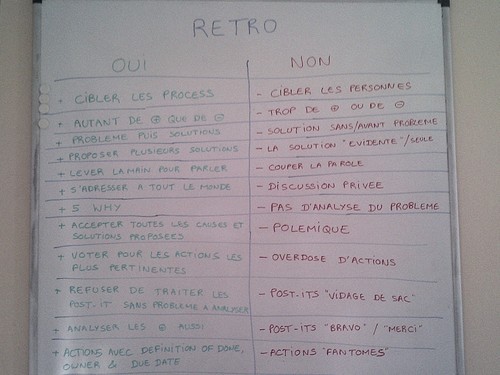 RETRO
OUI NON
+ CIBLER LES PROCESS - CIBLER LES PERSONNES
+ AUTANT DE ⊕ QUE DE ⊖ - TROP DE ⊕ OU DE ⊖
+ PROBLEME PUIS SOLUTIONS - SOLUTION SANS/AVANT PROBLEME
+ PROPOSER PLUSIEURS SOLUTIONS - LA SOLUTION "EVIDENTE"/SEULE
+ LEVER LA MAIN POUR PARLER - COUPER LA PAROLE
+ S'ADRESSER A TOUT LE MONDE - DISCUSSION PRIVEE
+ 5 WHY - PAS D'ANALYSE DU PROBLEME
+ ACCEPTER TOUTES LES CAUSES ET
SOLUTIONS PROPOSEES - POLEMIQUE
+ VOTER POUR LES ACTIONS LES
PLUS PERTINENTES - OVERDOSE D'ACTIONS
+ REFUSER DE TRAITER LES
POST-IT SANS PROBLEME A ANALYSER - POST-ITS "VIDAGE DE SAC"
+ ANALYSER LES ⊕ AUSSI - POST-ITS "BRAVO" / "MERCI"
+ ACTIONS AVEC DEFINITION OF DONE, - ACTIONS "FANTOMES"
OWNER & DUE DATE